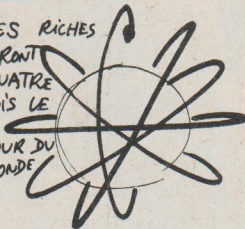 ES RICHES
RONT
UATRE
IS LE
OUR DU
ONDE